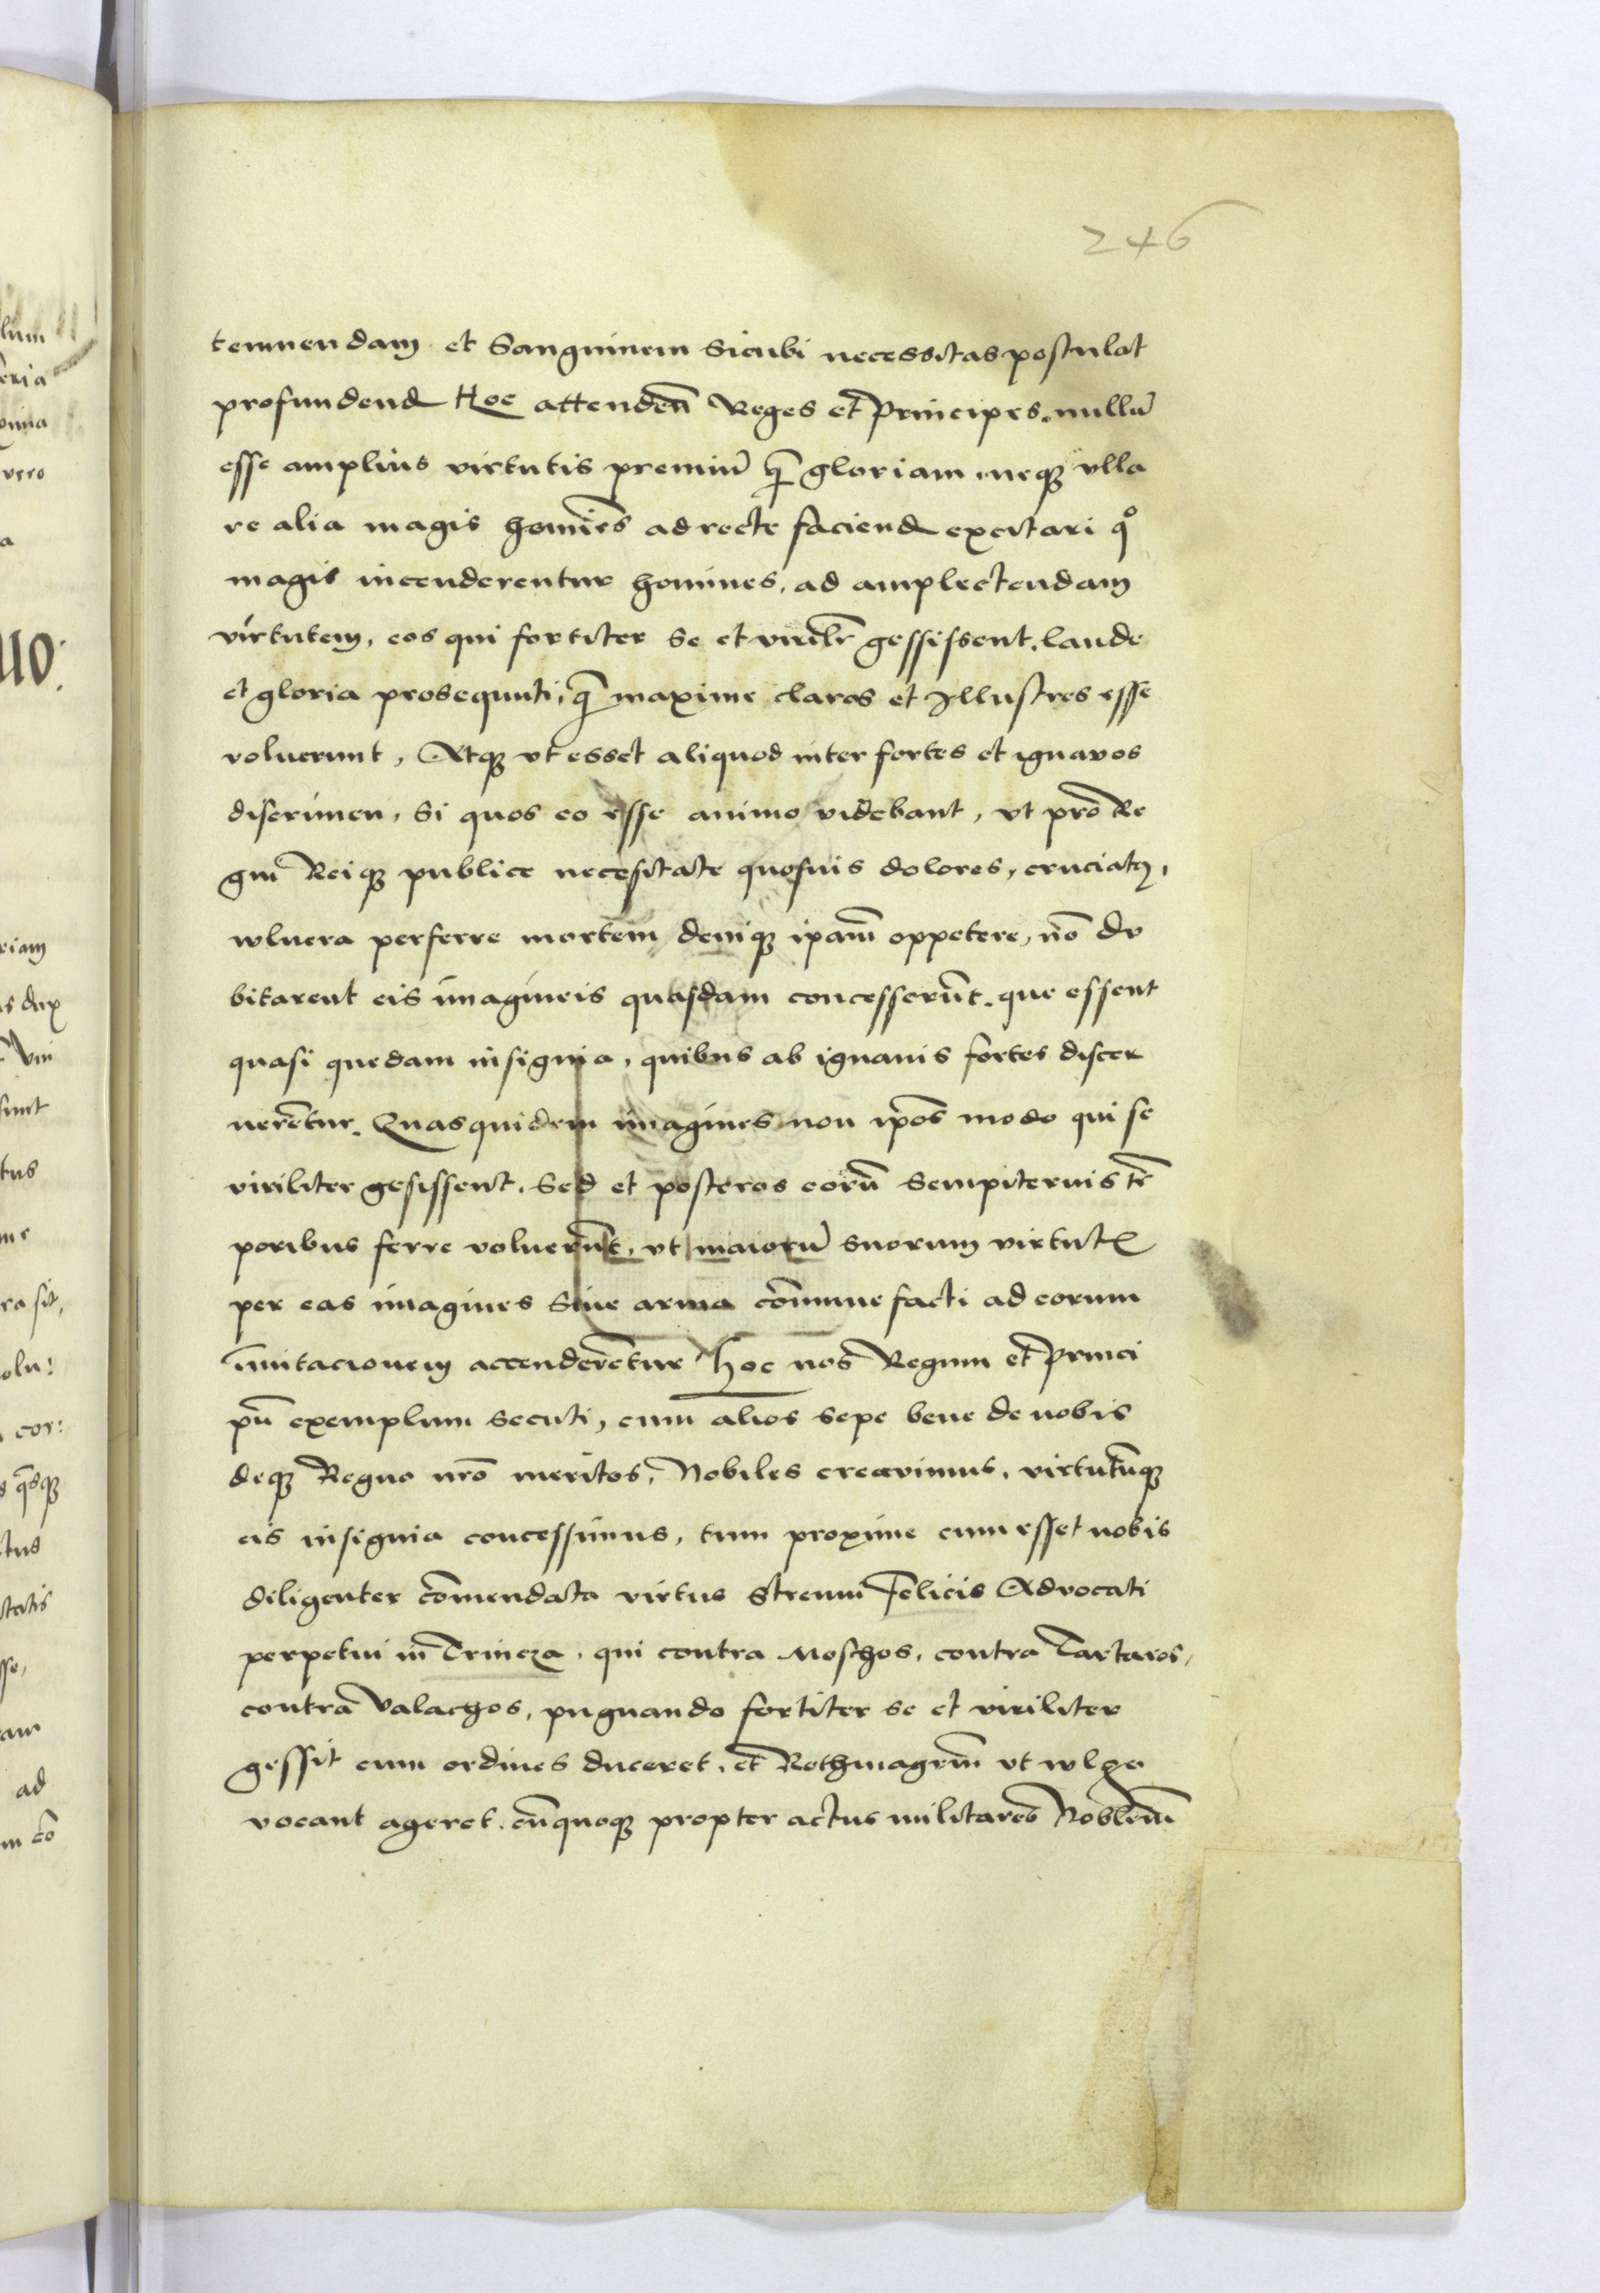 246
temnendam et Sanguinem Sicubi necessitas postulat
profundend Hoc attendeñ Reges et Principes. nullũ
esse amplius virtutis premiũ q̃ gloriam. neqꝫ vlla
re alia magis homĩes ad recte faciend excitari qͦ
magis incenderentur homines, ad amplectendam
virtutem, eos qui fortiter se et virilr̃ gessissent, laude
et gloria prosequuti, q̃ maxime claros et Illustres esse
voluerunt, Atqꝫ vt esset aliquod inter fortes et ignavos
discrimen, Si quos eo esse animo videbant, vt pro Re
gni Reiqꝫ publice necesitate quosuis dolores, cruciatꝰ,
wlnera perferre mortem deniqꝫ ipam̃ oppetere, nõ du
bitarent eis imagineis quasdam concesserũt. que essent
quasi quedam insignia, quibus ab ignauis fortes discer
nerẽtur. Quas quidem imagines non ip̃os modo qui se
viriliter gesissent, Sed et posteros eorũ Sempiternis tẽ
poribus ferre voluerũt, vt maiorũ suorum virtutẽ
per eas imagines Siue arma cõmmue facti ad eorum
ĩmitacionem accenderẽtur Hoc nos Regum et Princi
pũ exemplum secuti, cum alios sepe bene de nobis
deqꝫ Regno nr̃o meritos, Nobiles creavimus, virtutũqꝫ
eis insignia concessimus, tum proxime cum esset nobis
diligenter cõmendata virtus Strenui Felicis Advocati
perpetui in Trincza, qui contra Moschos, contra Tartaros,
contra Valachos, pugnando fortiter se et viriliter
gessit cum ordines duceret, et Rothmagrm̃ vt wlgo
vocant ageret. eũquoqꝫ propter actus militares Nobilem̃